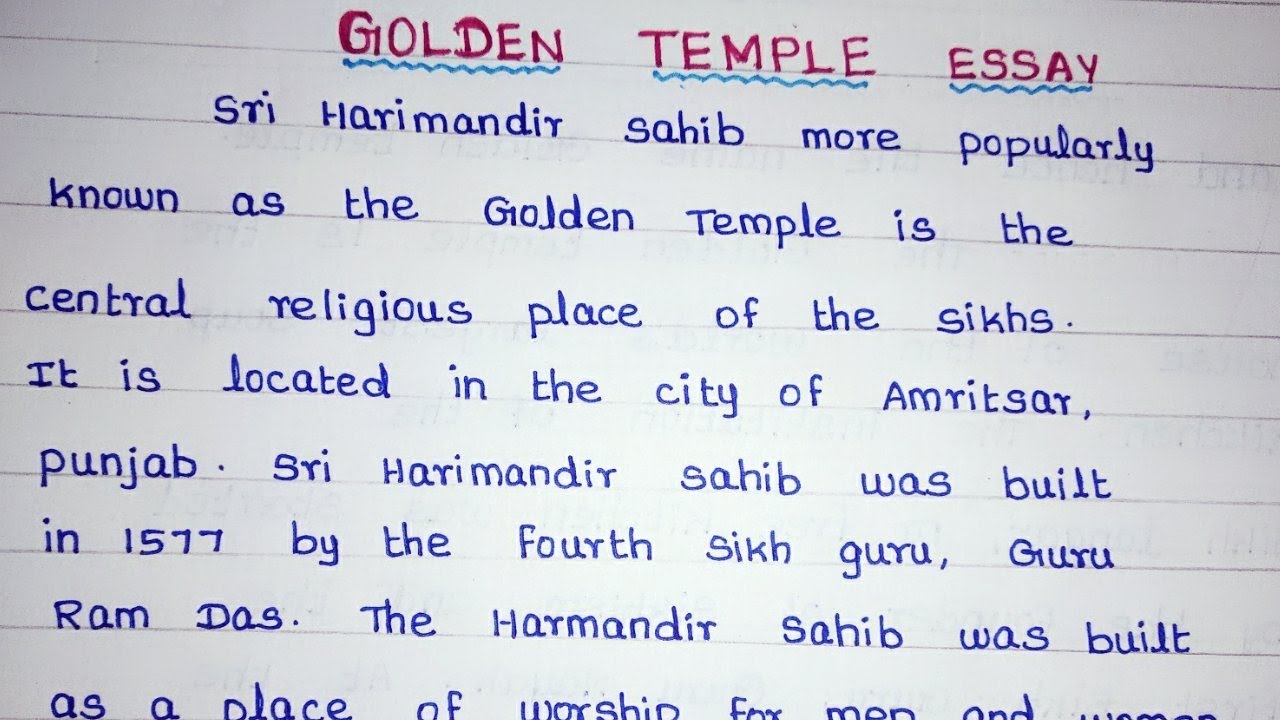 GOLDEN TEMPLE ESSAY
Sri Harimandir Sahib more popularly
known as the Golden Temple is the
central religious place of the sikhs.
It is located in the city of Amritsar,
punjab. Sri Harimandir Sahib was built
in 1577 by the Fourth Sikh guru, Guru
Ram Das. The Harmandir Sahib was built
as a place of worship for men and women